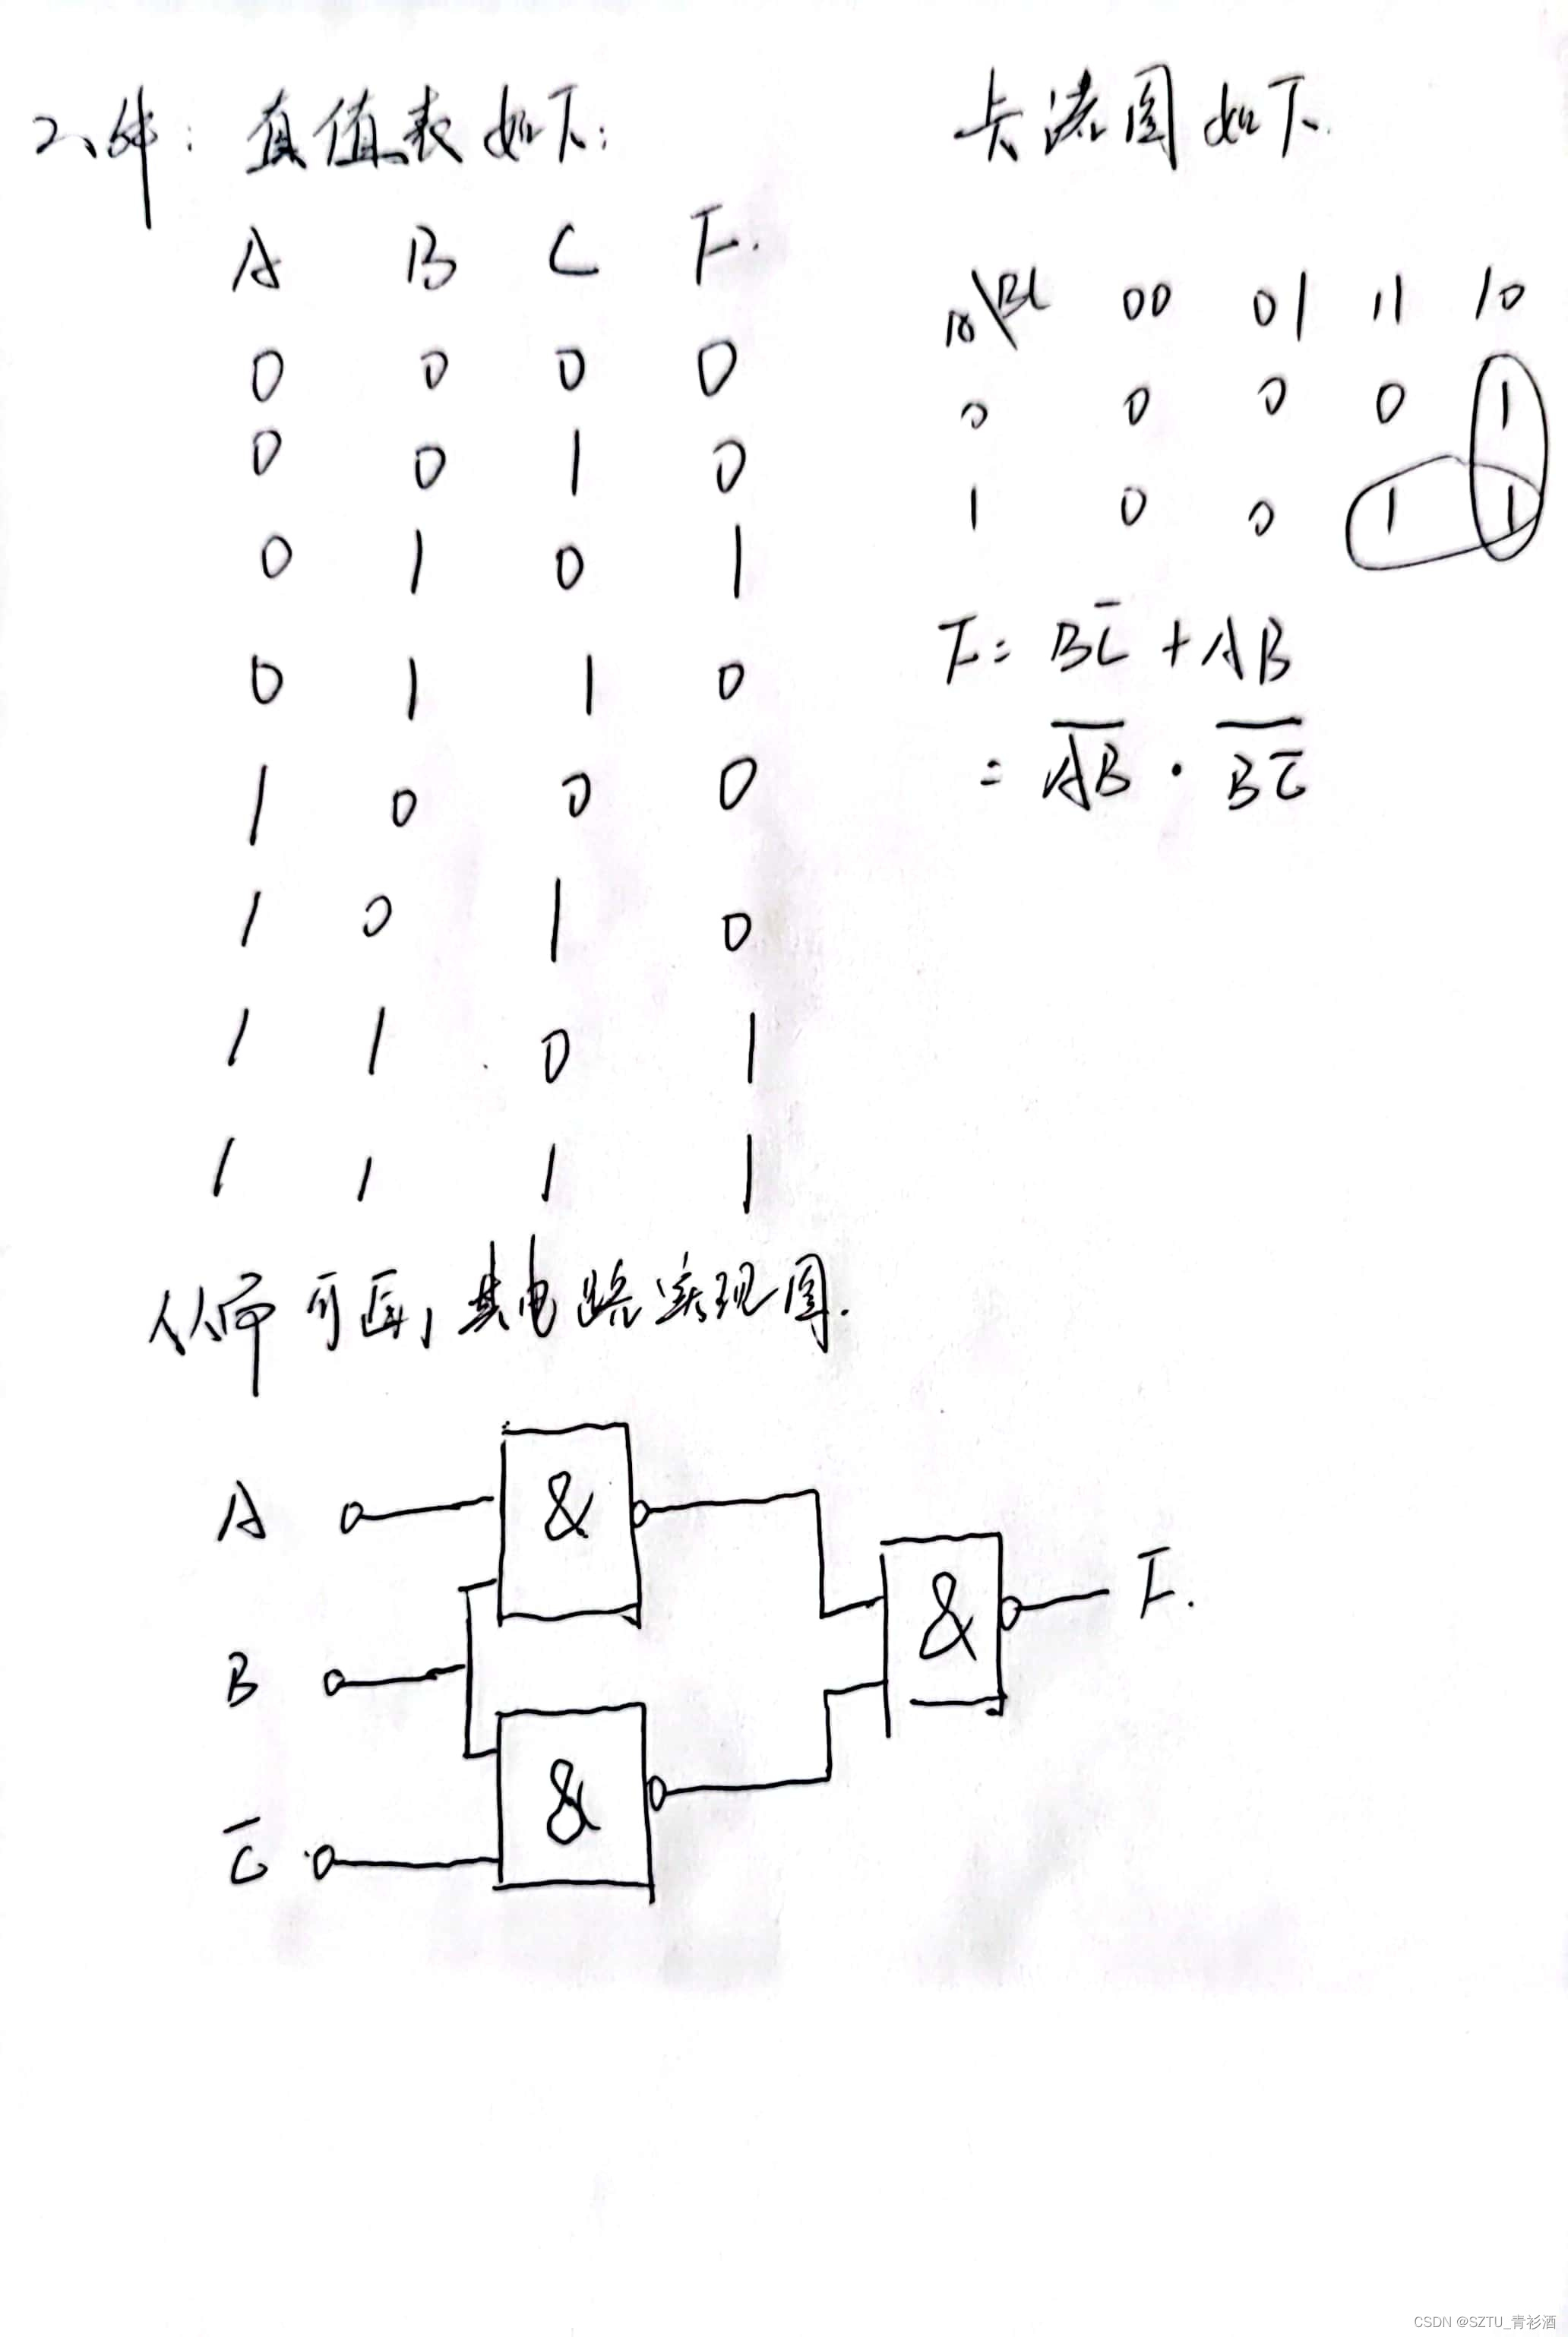 2、解：真值表如下：
A B C F.
0 0 0 0
0 0 1 0
0 1 0 1
0 1 1 0
1 0 0 0
1 0 1 0
1 1 0 1
1 1 1 1
卡诺图如下
A\BC 00 01 11 10
0 0 0 0 1
1 0 0 1 1
F = BC̅ + AB
= \overline{AB} · \overline{BC̅}
可画,其电路实现图.
A
&
B
&
C̅
&
F.
CSDN @SZTU_青衫酒